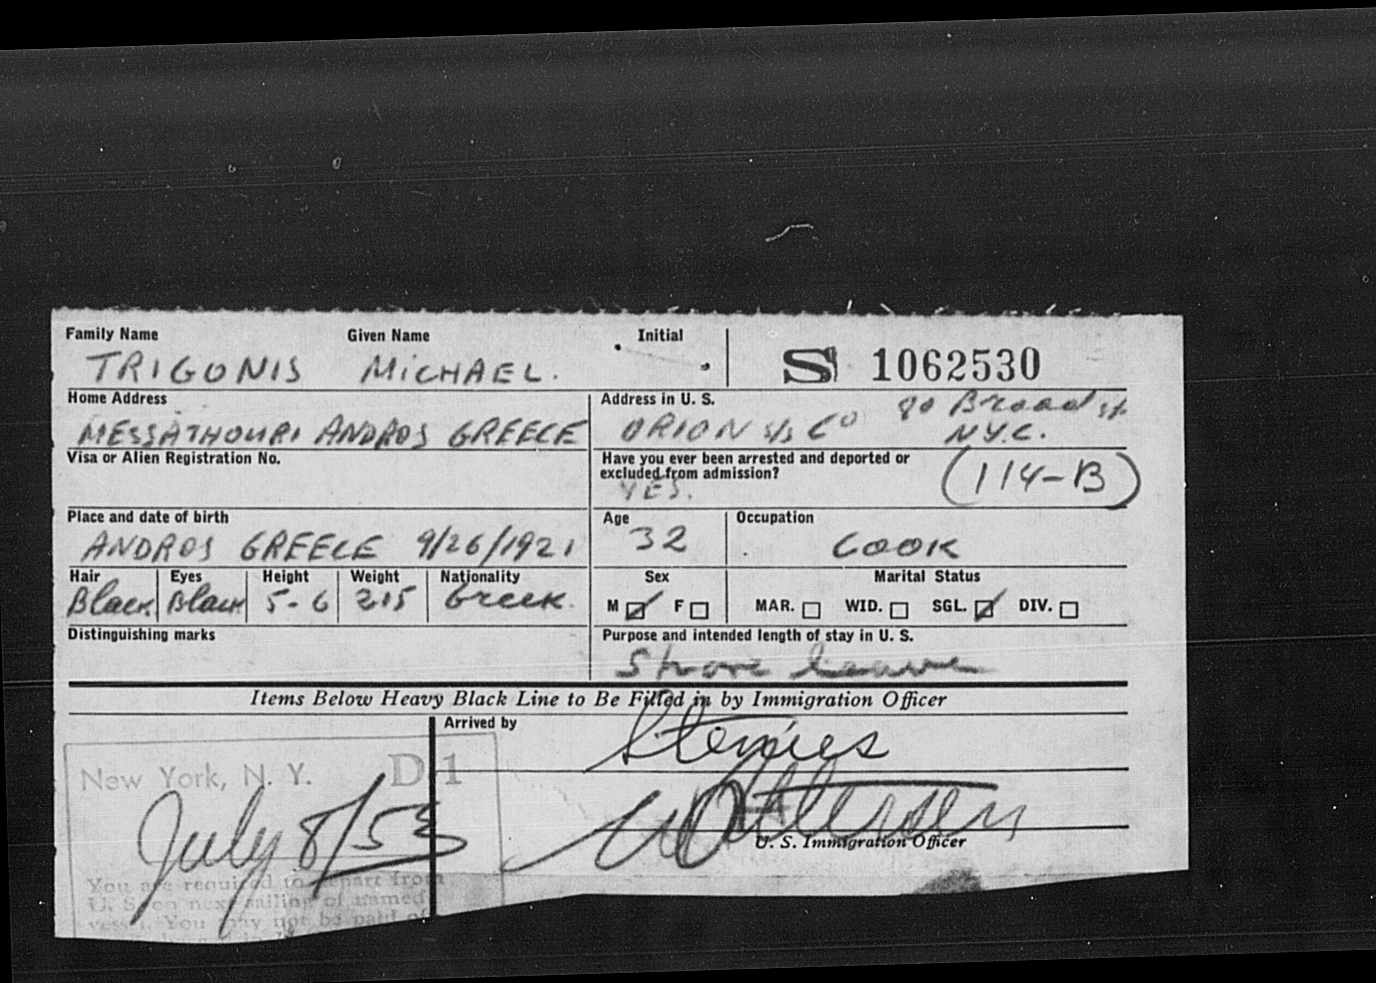 Family Name Given Name Initial
TRIGONIS MICHAEL. S 1062530
Home Address Address in U. S.
MESSATHOURI ANDROS GREECE ORION S/S Co 80 Broad st. N.Y.C.
Visa or Alien Registration No. Have you ever been arrested and deported or excluded from admission?
YES. (114-B)
Place and date of birth Age Occupation
ANDROS GREECE 9/26/1921 32 COOK
Hair Eyes Height Weight Nationality Sex Marital Status
Black Black 5-6 215 Greek. M F MAR. WID. SGL. DIV.
Distinguishing marks Purpose and intended length of stay in U. S.
Shore leave
Items Below Heavy Black Line to Be Filled in by Immigration Officer
Arrived by
New York, N. Y. D 1
July 8/53
U. S. Immigration Officer
You are required to depart from
U. S. on next sailing of named
vessel. You may not be paid off